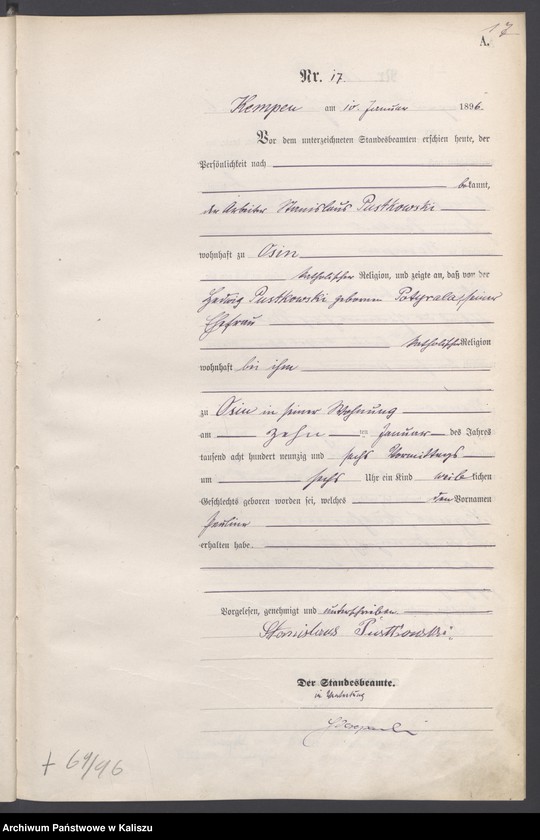 17
A.
Nr. 17.
Kempen am 10. Januar 1896.
Vor dem unterzeichneten Standesbeamten erschien heute, der
Persönlichkeit nach
bekannt,
der Arbeiter Stanislaus Pustkowski
wohnhaft zu Osin
katholischer Religion, und zeigte an, daß von der
Hedwig Pustkowski geborenen Potyrala, seiner
Ehefrau
katholischer Religion
wohnhaft bei ihm
zu Osin in seiner Wohnung
am zehn ten Januar des Jahres
tausend acht hundert neunzig und sechs Vormittags
um sechs Uhr ein Kind weiblichen
Geschlechts geboren worden sei, welches den Vornamen
Pauline
erhalten habe.
Vorgelesen, genehmigt und unterschrieben
Stanislaus Pustkowski.
Der Standesbeamte.
in Vertretung
+ 69/96
Archiwum Państwowe w Kaliszu